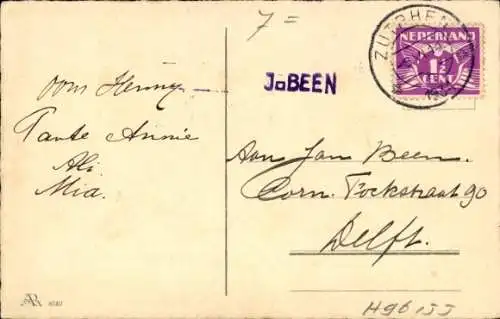 7=
ZUTPHEN
NEDERLAND
1½
CENT
JoBEEN
oom Henny
Tante Annie
Ali
Mia.
Aan Jan Been.
Corn. Fockstraat 90
Delft.
H96155